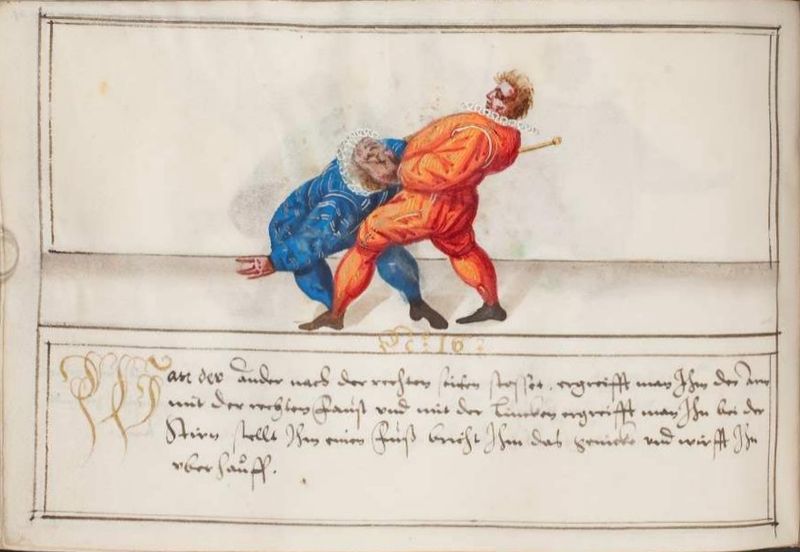 No: 16:
Wan der ander nach der rechten seiten stosset, ergreifft man Ihm den Arm
mit der rechten faust und mit der Lincken ergreifft man Ihn bei der
Stirn stellt Ihm einen fuß bricht Ihm das genickh und wirfft Ihn
vber hauff.